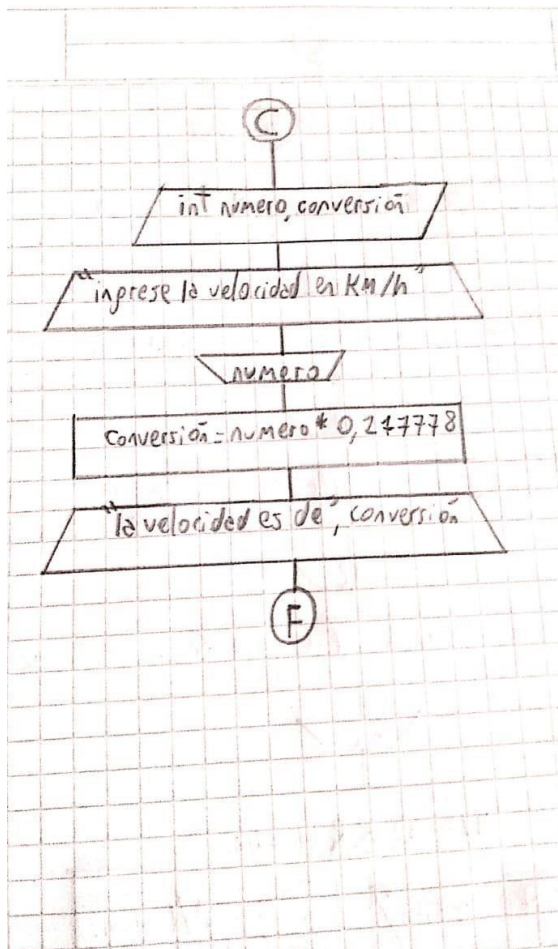 C
int numero, conversión
"ingrese la velocidad en KM/h"
numero
conversión = numero * 0,277778
"la velocidad es de", conversión
F